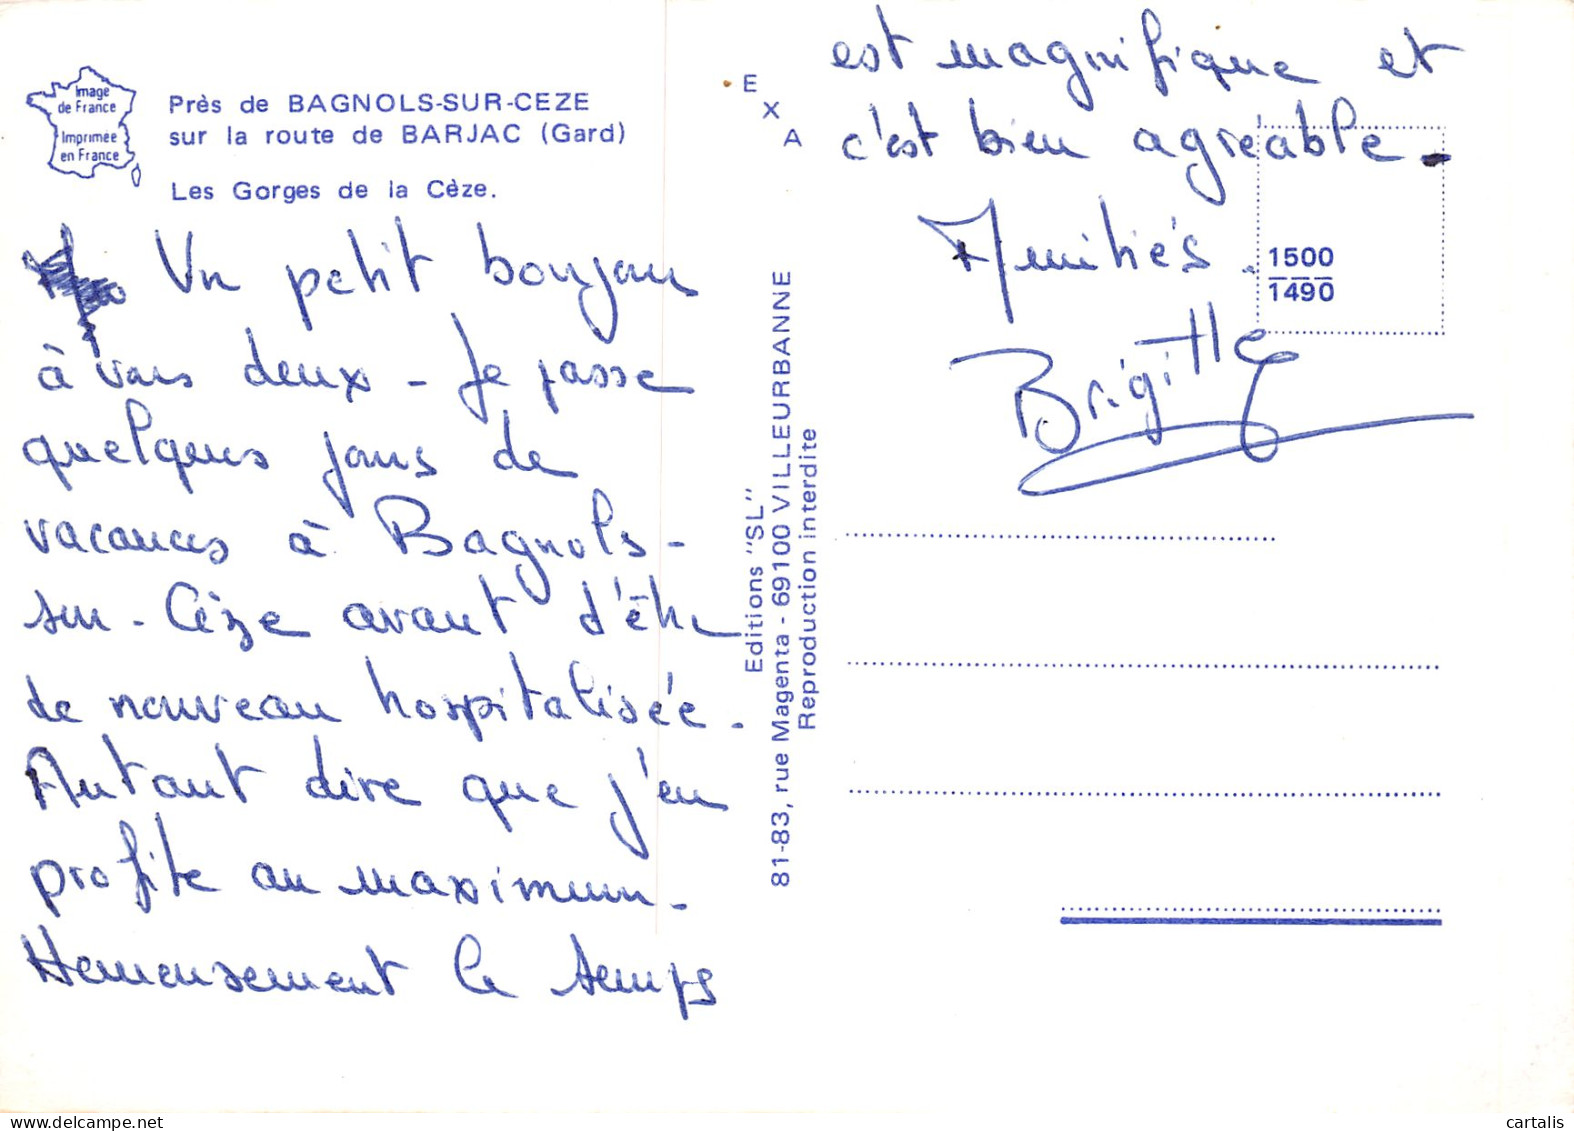 Image
de France
Imprimée
en France
Près de BAGNOLS-SUR-CEZE
sur la route de BARJAC (Gard)
Les Gorges de la Cèze.
Un petit bonjour
à vous deux - Je passe
quelques jours de
vacances à Bagnols-
sur-Cèze avant d'être
de nouveau hospitalisée.
Autant dire que j'en
profite au maximum.
Heureusement le temps
est magnifique et
c'est bien agréable.
Amitiés.
Brigitte
E
X
A
1500
1490
Editions "SL"
81-83, rue Magenta - 69100 VILLEURBANNE
Reproduction interdite
cartalis
www.delcampe.net